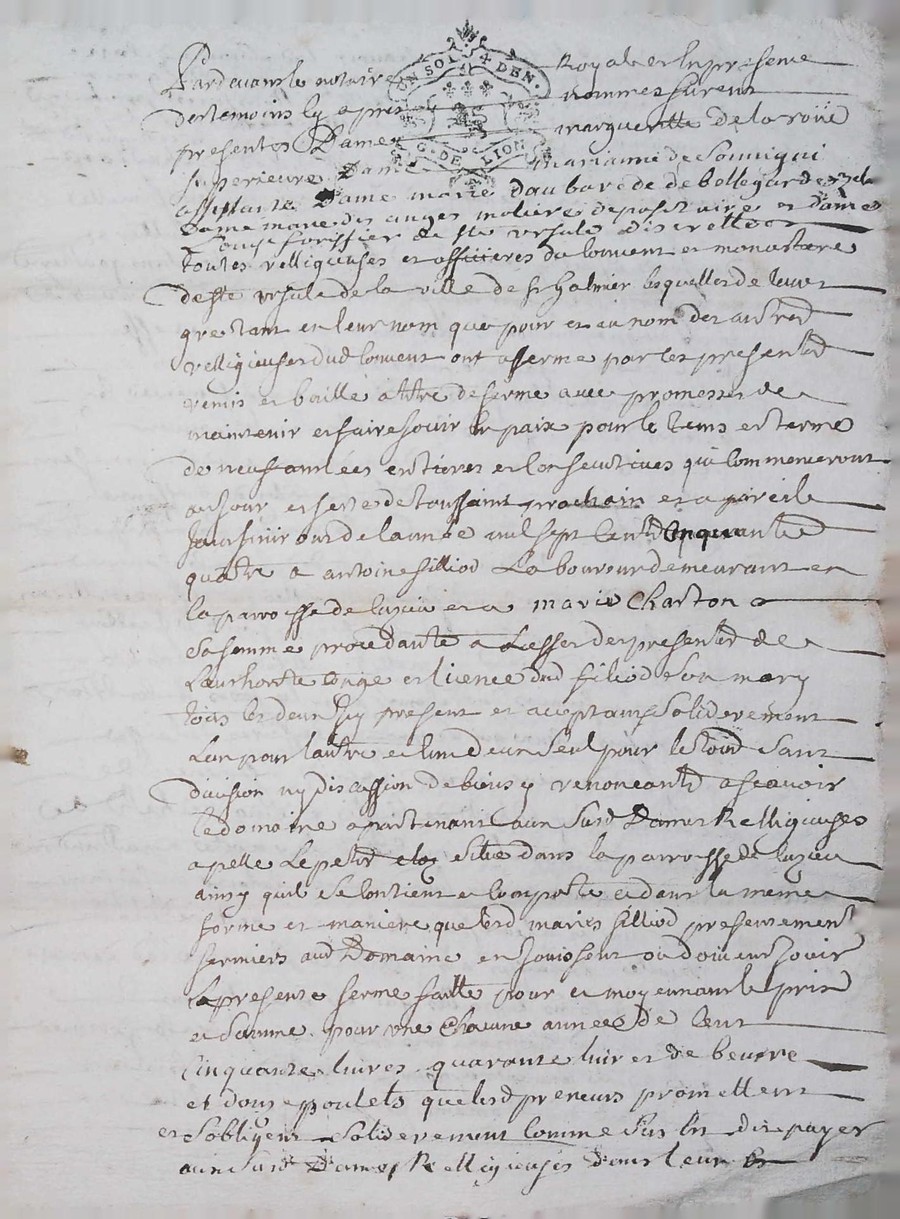 Pardevant le notaire Royal et en presence
UN SOL 4 DEN.
G. DE LION
des temoins bas apres nommes furent
presentes Dame margueritte de la roüe
superieure Dame marianne de Sonnigui
assistante Dame marie Daubarede de bellegarde
Dame marie des anges moliere depositaire et Dame
Louise forissier de ste ursule discrette
toutes relligieuses et officieres du Couvent et monastere
de ste ursule de la ville de st Galmier lesquelles de leur
gre tant en leur nom que pour et au nom des autres
relligieuses dud Couvent ont asserme par les presentes
remis et baille a tittre de ferme avec promesses de
maintenir et faire jouir en paix pour le tems et terme
de neuf années entieres et Consecutives qui Commenceront
au jour et feste de toussaint prochain et a pareil
jour finiront de lannée mil sept Cent Cinquante
quatre a antoine filliod Laboureur demeurant en
la parroisse de luzieu et a marie Charton
sa femme procedante a Leffet des presentes de
Lauthorite Conge et licence dud filiod son mary
tous les deux icy present et acceptans Soliderement
Lun pour lautre et lun deux seul pour le tout sans
division ny discussion de biens y renonceants ascavoir
le domaine apartenant aux susd Dames Relligieuses
apelle Le petit situé dans la parroisse de luzieu
ainsy quil se Contient et Comporte et dans la meme
forme et maniere que lesd maries filliod presentement
fermiers aud Domaine en jouissent ou doivent jouir
La presente ferme faitte pour et moyennant le prix
et Somme pour une Chacune année de Cent
Cinquante livres quarante livres de beurre
et douze poulets que lesd preneurs promettent
et sobligent soliderement Comme sus est dit payer
aux susd Dames Relligieuses dans leur